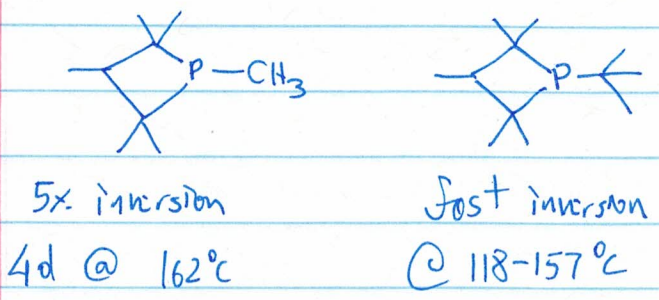 P—CH₃ P
5% inversion fast inversion
4d @ 162°C @ 118-157°C